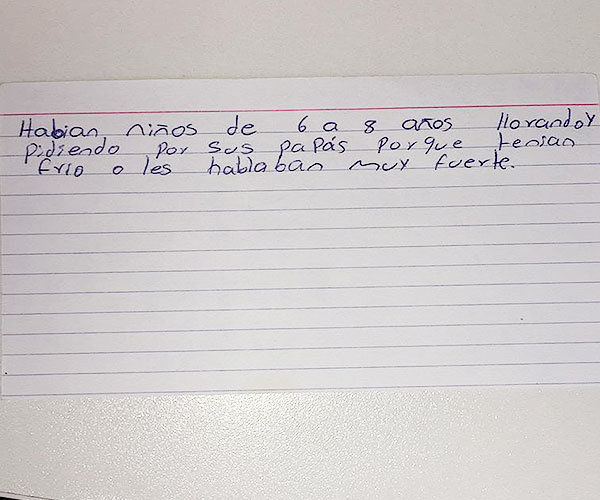 Habian niños de 6 a 8 años llorando y
pidiendo por sus papás porque tenian
frio o les hablaban muy fuerte.